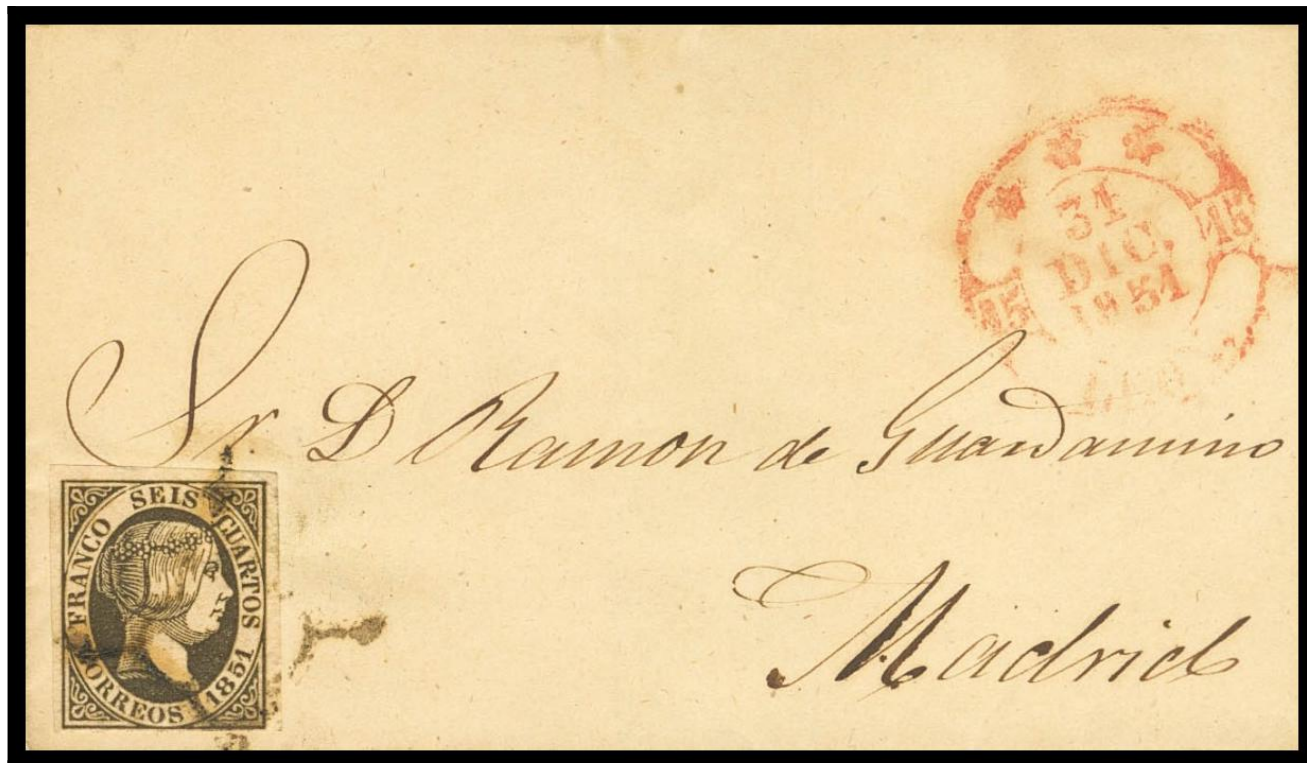 15 31 15
DIC.
1851
Sr D Ramon de Guardamino
Madrid
FRANCO SEIS CUARTOS
CORREOS 1851